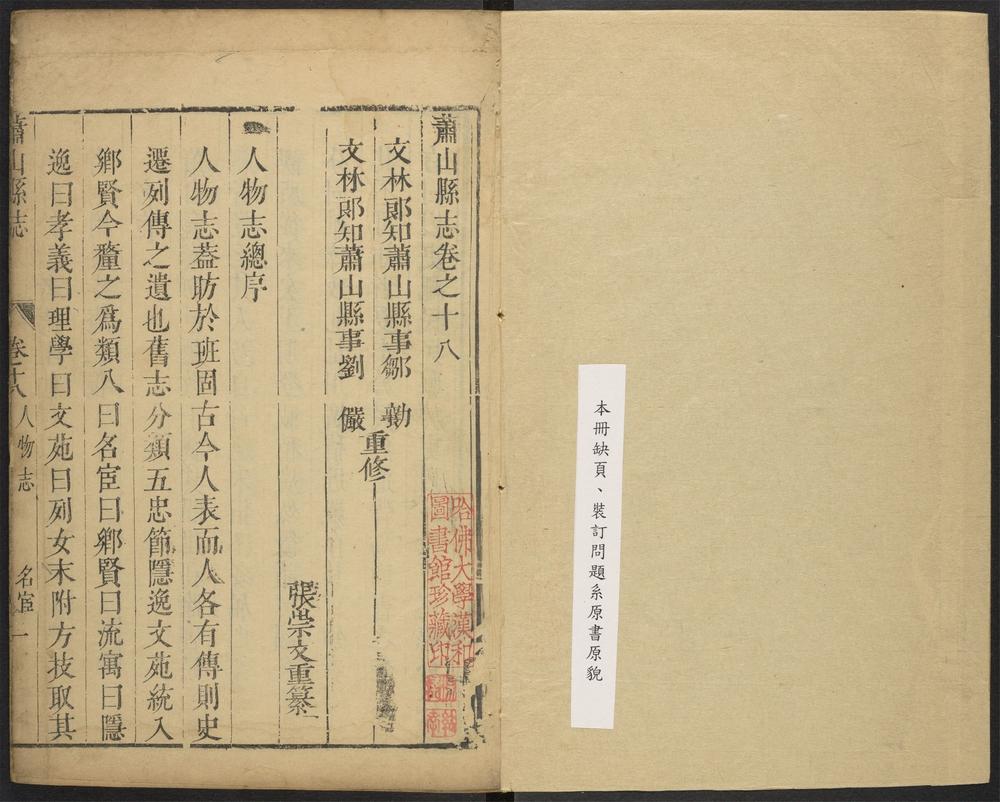 本冊缺頁、裝訂問題系原書原貌
蕭山縣志卷之十八
文林郎知蕭山縣事鄒勷
文林郎知蕭山縣事劉儼
重修
張崇文重纂
人物志總序
人物志葢昉於班固古今人表而人各有傳則史
遷列傳之遺也舊志分類五忠節隱逸文苑統入
鄉賢今釐之爲類八曰名宦曰鄉賢曰流寓曰隱
逸曰孝義曰理學曰文苑曰列女末附方技取其
蕭山縣志 卷十八 人物志 名宦 一
哈佛大學漢和
圖書館珍藏印